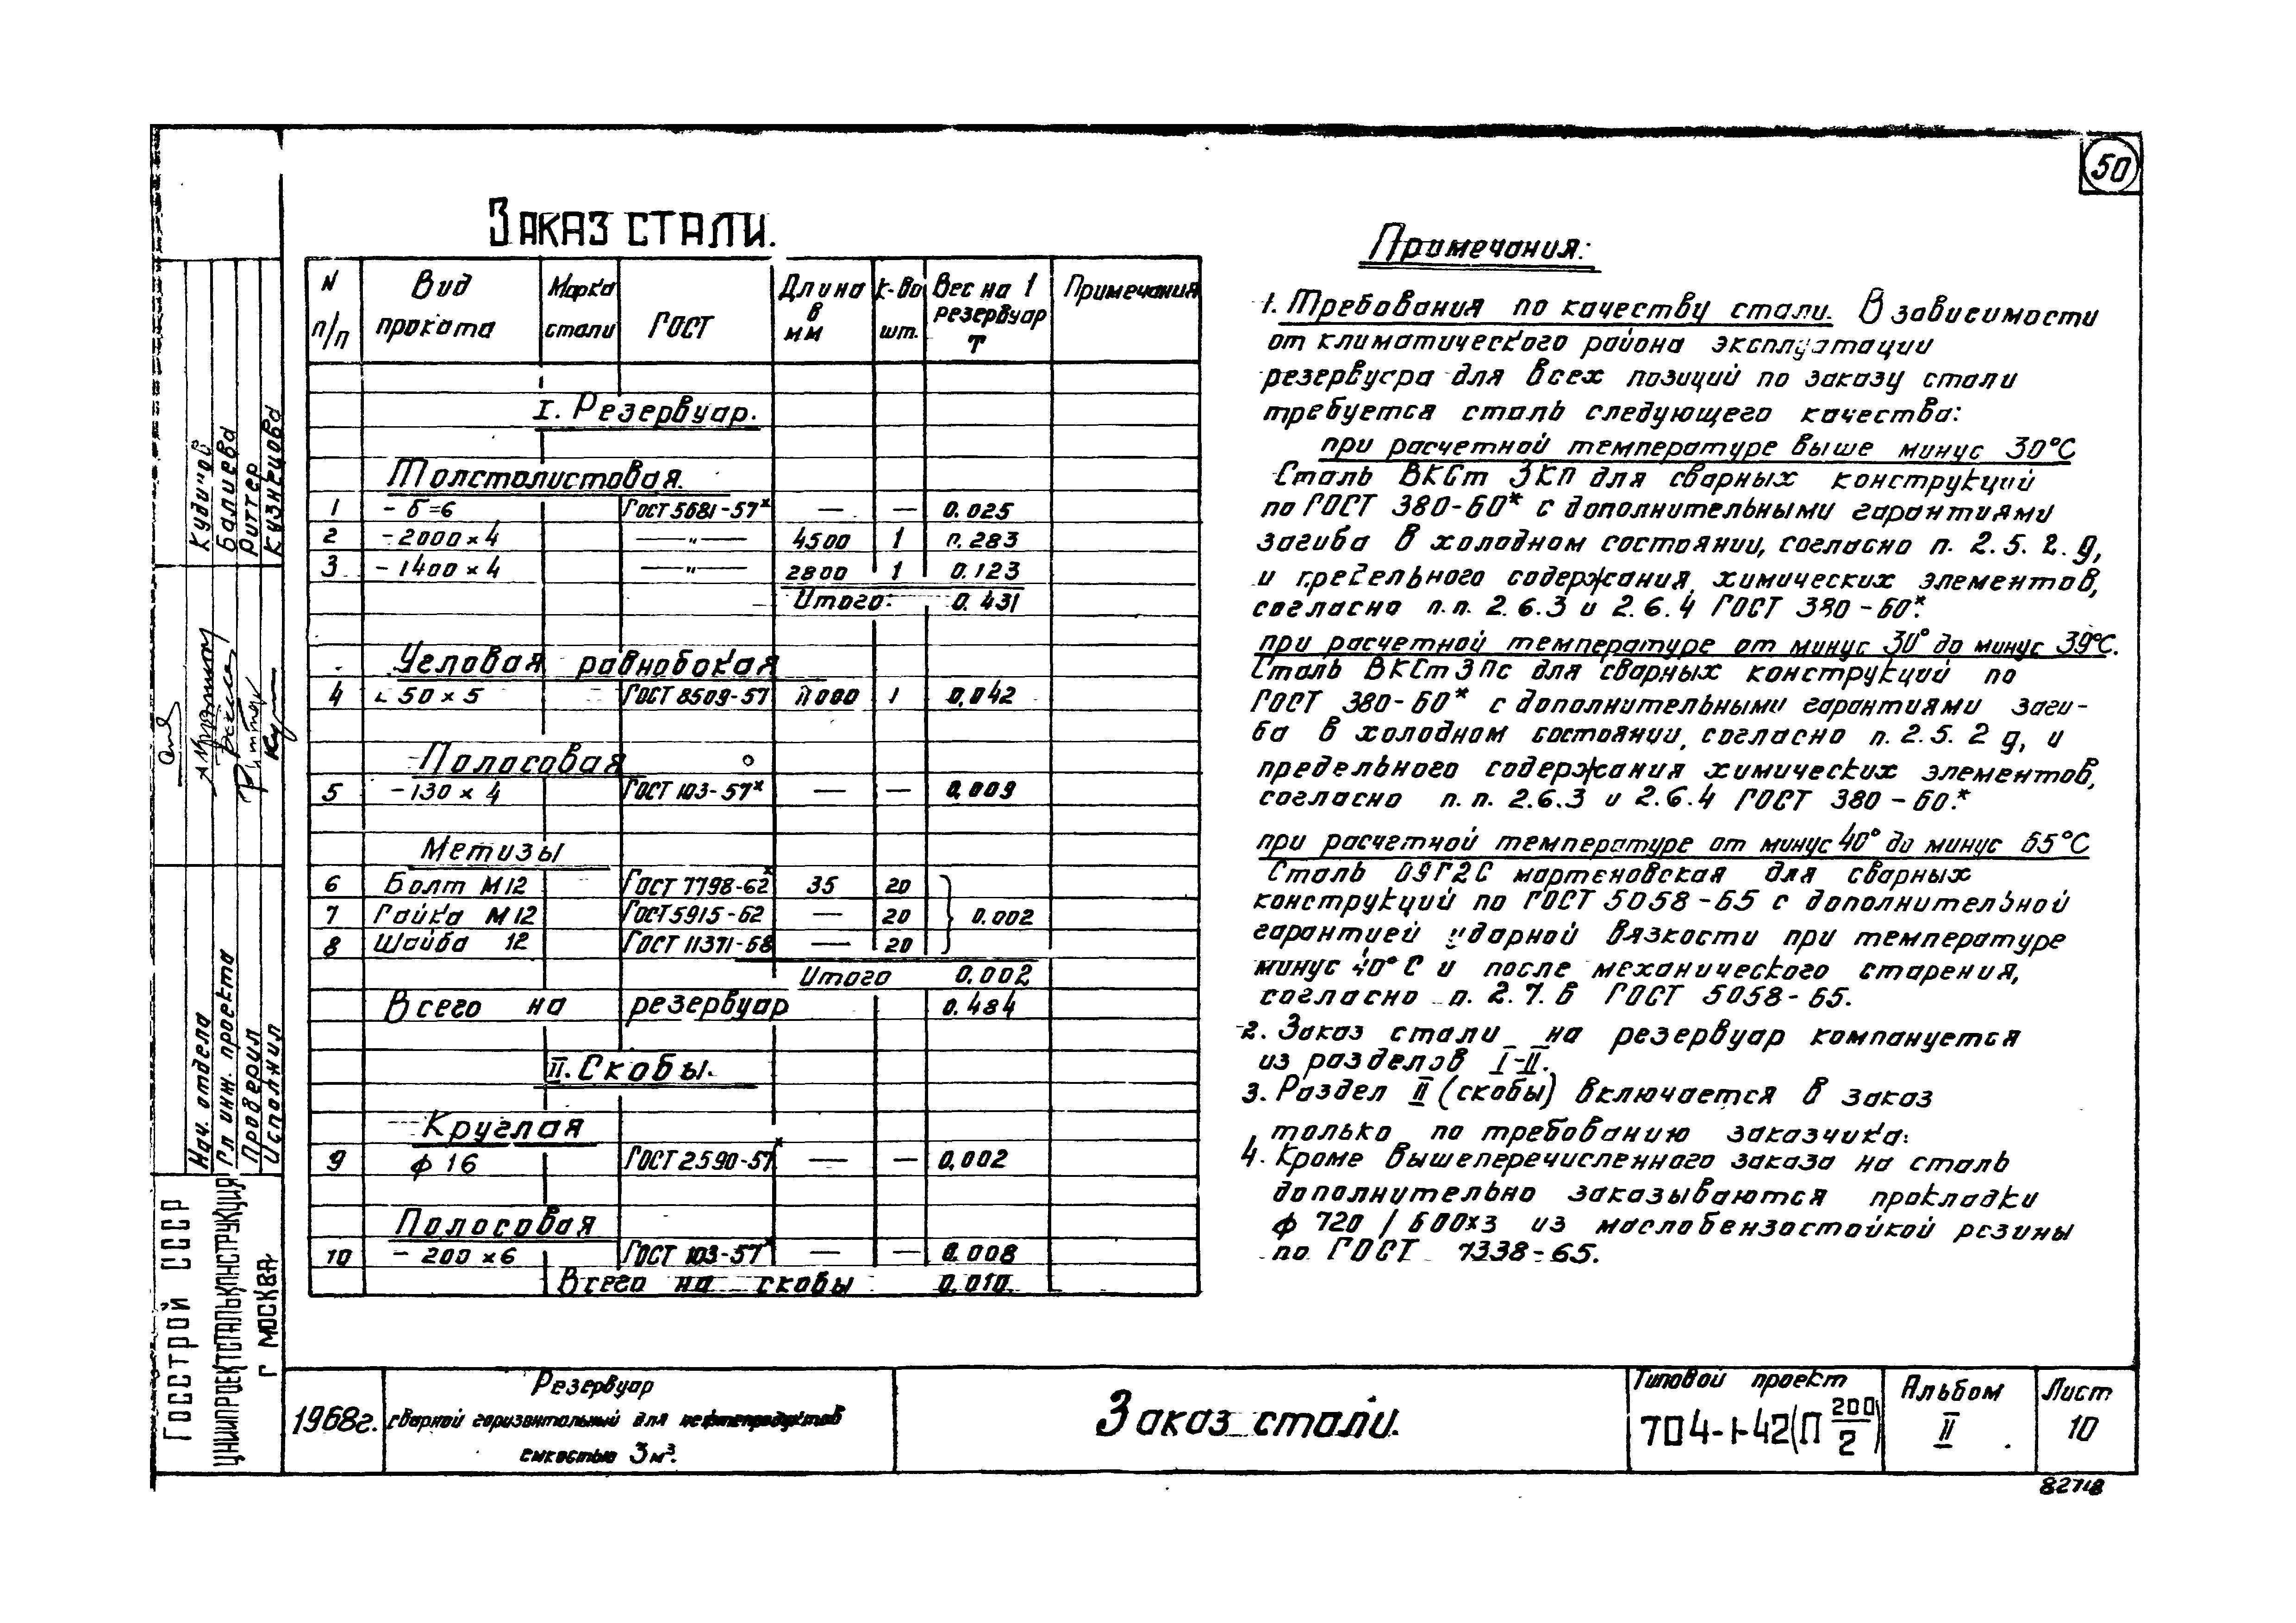 50
Заказ стали.
N п/п Вид проката Марка стали ГОСТ Длина в мм К-во шт. Вес на 1 резервуар т Примечания
I. Резервуар.
Толстолистовая.
1 - δ=6 ГОСТ 5681-57* — — 0.025
2 - 2000×4 —"— 4500 1 0.283
3 - 1400×4 —"— 2800 1 0.123
Итого: 0.431
Угловая равнобокая
4 ∟ 50×5 ГОСТ 8509-57 11000 1 0,042
Полосовая
5 - 130×4 ГОСТ 103-57* — — 0,009
Метизы
6 Болт М12 ГОСТ 7798-62* 35 20
7 Гайка М12 ГОСТ 5915-62 — 20 0.002
8 Шайба 12 ГОСТ 11371-68 — 20
Итого 0.002
Всего на резервуар 0.484
II. Скобы.
Круглая
9 ф 16 ГОСТ 2590-57* — — 0,002
Полосовая
10 - 200×6 ГОСТ 103-57* — — 0.008
Всего на скобы 0.010
Примечания:
1. Требования по качеству стали. В зависимости
от климатического района эксплуатации
резервуара для всех позиций по заказу стали
требуется сталь следующего качества:
при расчетной температуре выше минус 30°С
Сталь ВКСт 3КП для сварных конструкций
по ГОСТ 380-60* с дополнительными гарантиями
загиба в холодном состоянии, согласно п. 2.5.2.д,
и предельного содержания химических элементов,
согласно п.п. 2.6.3 и 2.6.4 ГОСТ 380-60*.
при расчетной температуре от минус 30° до минус 39°С.
Сталь ВКСт 3пс для сварных конструкций по
ГОСТ 380-60* с дополнительными гарантиями заги-
ба в холодном состоянии, согласно п. 2.5.2 д, и
предельного содержания химических элементов,
согласно п.п. 2.6.3 и 2.6.4 ГОСТ 380-60.*
при расчетной температуре от минус 40° до минус 65°С
Сталь 09Г2С мартеновская для сварных
конструкций по ГОСТ 5058-65 с дополнительной
гарантией ударной вязкости при температуре
минус 40°С и после механического старения,
согласно п. 2.7.в ГОСТ 5058-65.
2. Заказ стали на резервуар компануется
из разделов I-II.
3. Раздел II (скобы) включается в заказ
только по требованию заказчика.
4. Кроме вышеперечисленного заказа на сталь
дополнительно заказываются прокладки
ф 720 / 600×3 из маслобензостойкой резины
по ГОСТ 7338-65.
Кудинов
Балиева
Риттер
Кузнецова
Нач. отдела
Гл инж. проекта
Проверил
Исполнил
Госстрой СССР
ЦНИИПРОЕКТСТАЛЬКОНСТРУКЦИЯ
г МОСКВА
1968г.
Резервуар
сварной горизонтальный для нефтепродуктов
емкостью 3м³.
Заказ стали.
Типовой проект
704-1-42(П 200/2)
Альбом
II
Лист
10